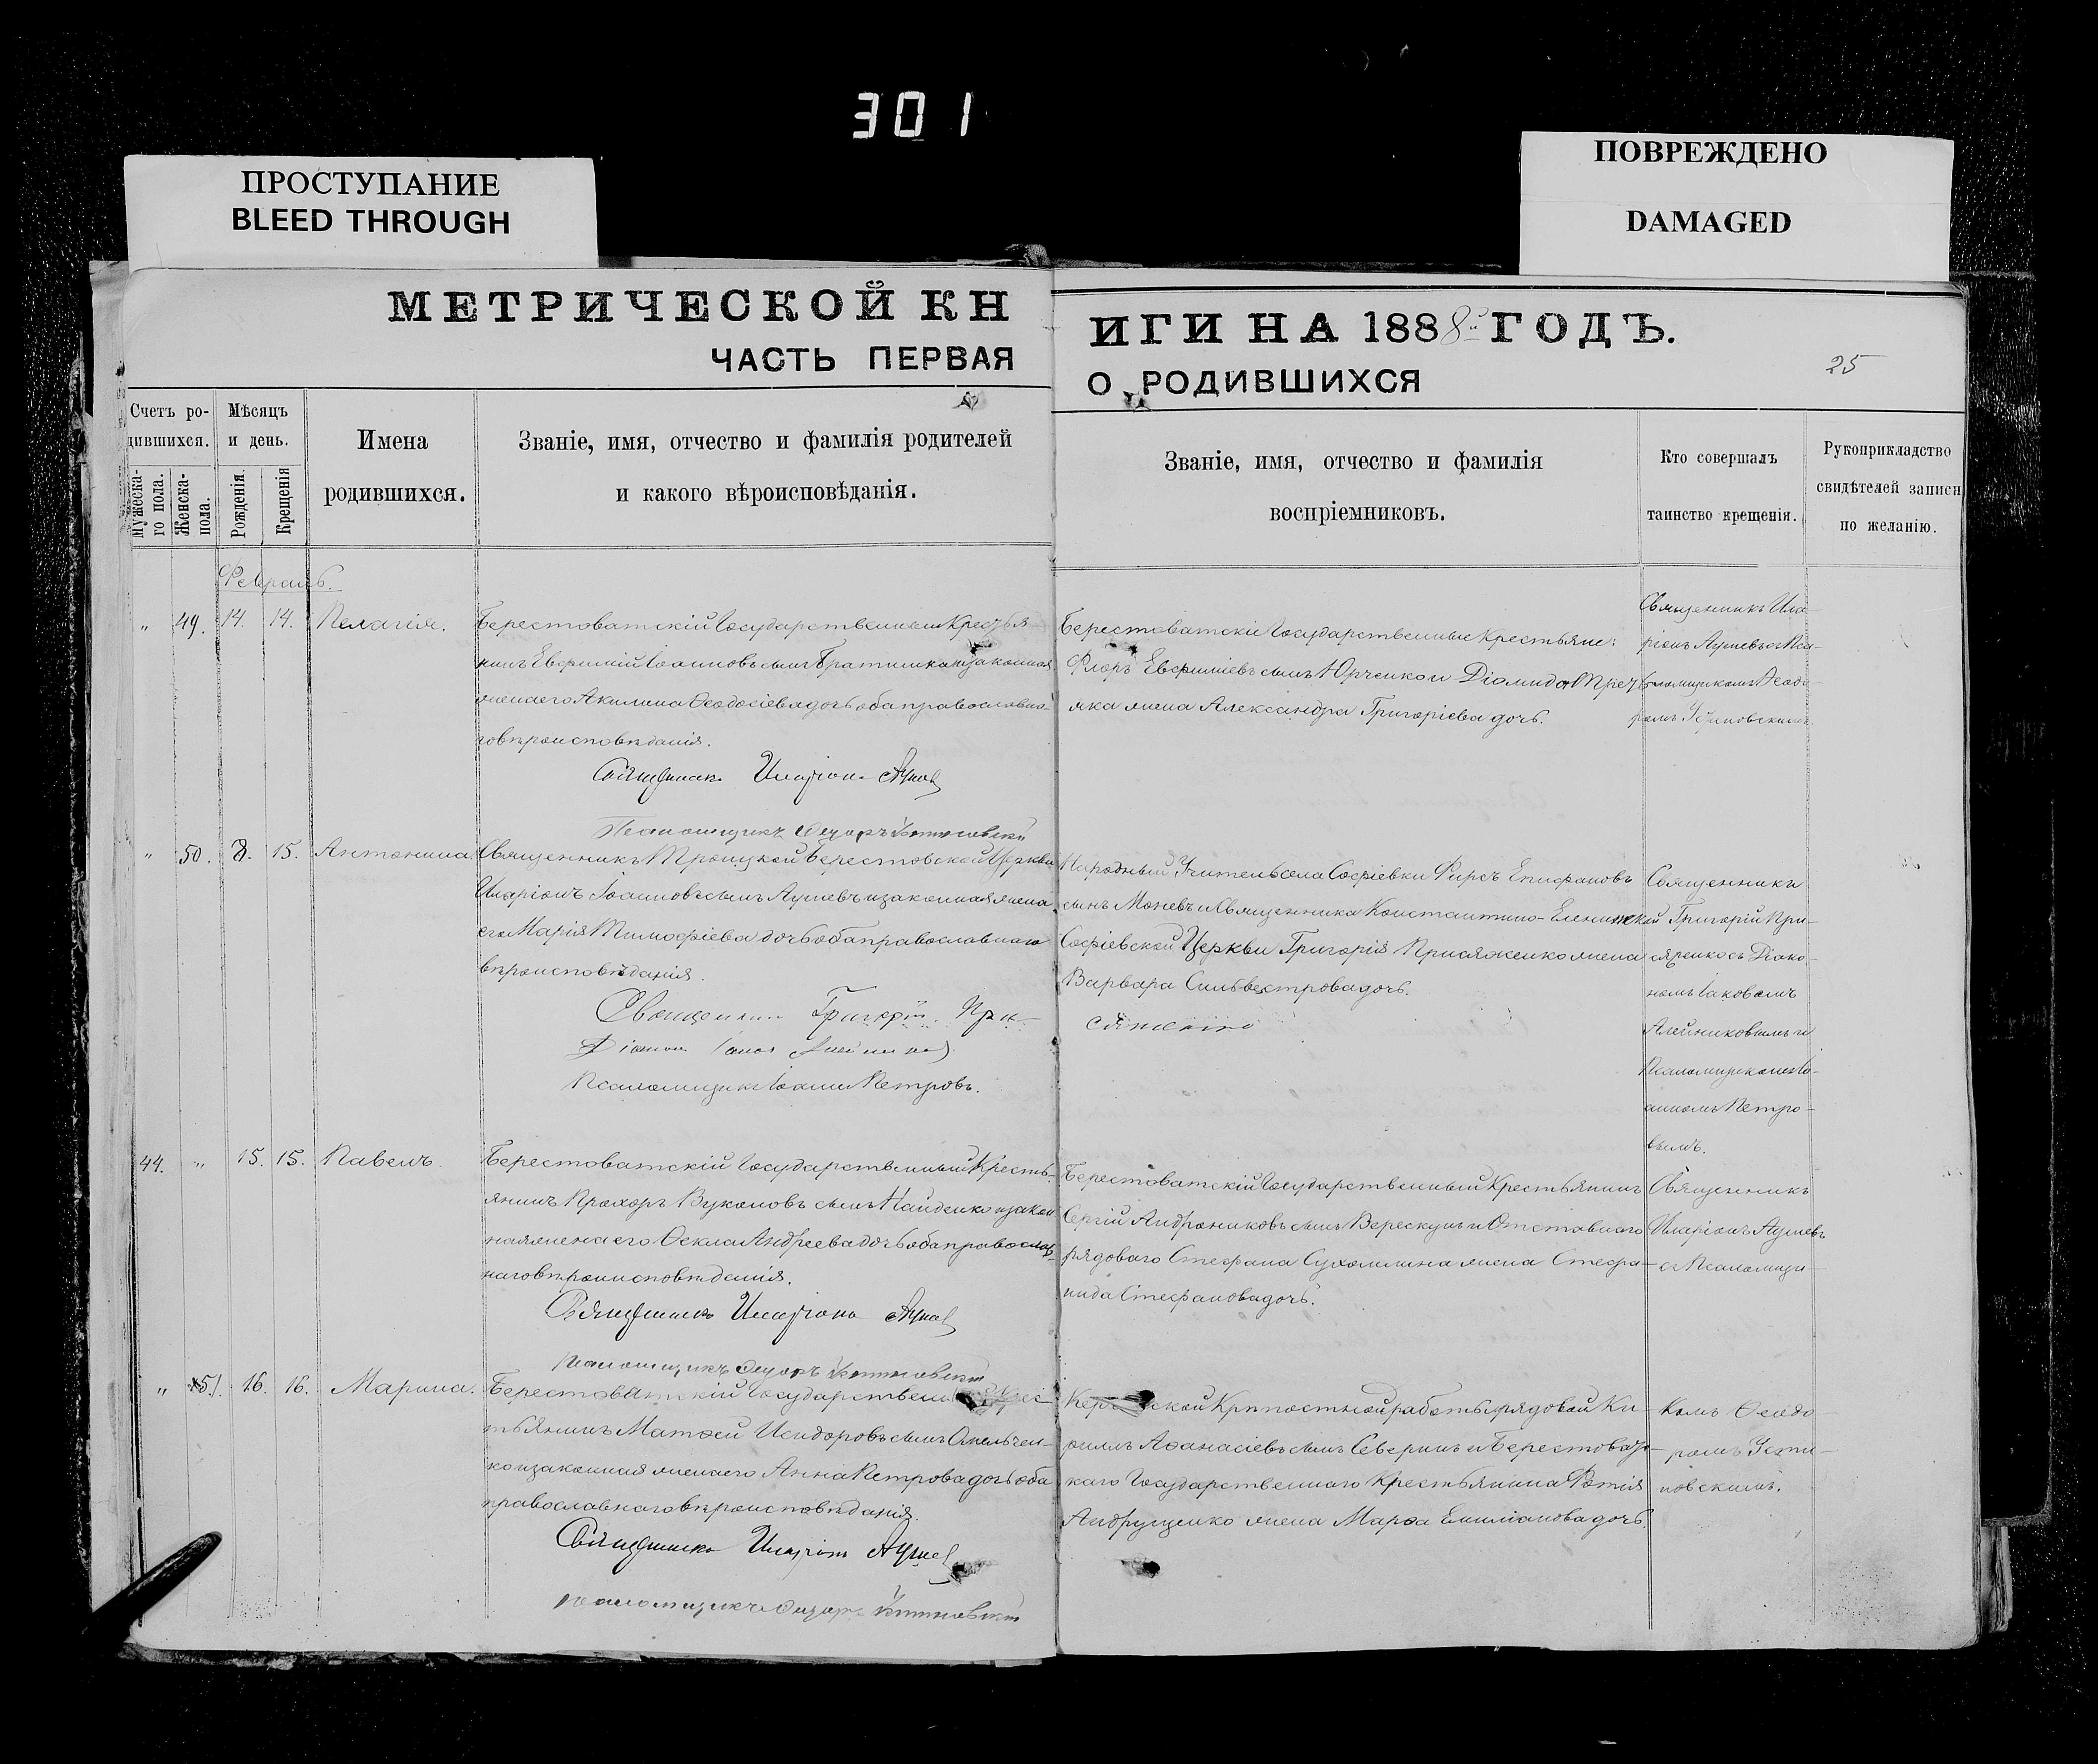 301
ПРОСТУПАНИЕ
BLEED THROUGH
ПОВРЕЖДЕНО
DAMAGED
МЕТРИЧЕСКОЙ КН
ЧАСТЬ ПЕРВАЯ
ИГИ НА 1888й ГОДЪ.
О РОДИВШИХСЯ
25
Счетъ ро-
дившихся.
Мужеска-
го пола.
Женска-
пола.
Мѣсяцъ
и день.
Рожденія.
Крещенія
Имена
родившихся.
Званіе, имя, отчество и фамилія родителей
и какого вѣроисповѣданія.
Званіе, имя, отчество и фамилія
воспріемниковъ.
Кто совершалъ
таинство крещенія.
Рукоприкладство
свидѣтелей записи
по желанію.
Февраль.
" 49. 14. 14. Пелагія.
Берестоватскій Государственный Крестья-
нинъ Евфимій Іоанновъ сынъ и законная
жена его Акилина Ѳеодосіева дочь оба православна-
го вѣроисповѣданія.
Священникъ Иларіонъ
Псаломщикъ
Берестоватскіе Государственные Крестьяне:
Флоръ Евфиміевъ сынъ Юрченко и Діомида
жена Александра Григоріева дочь.
Священникъ Ила-
ріонъ съ Пса-
ломщикомъ Ѳеодо-
ромъ
" 50. 8. 15. Антонина
Священникъ Троицкой Берестовской Церкви
Иларіонъ Іоанновъ сынъ и законная жена
его Марія Тимофіева дочь оба православнаго
вѣроисповѣданія.
Священникъ Григорій При-
сяженко
Діаконъ
Псаломщикъ Іоаннъ Петровъ.
Народный Учитель села Софіевки Фирсъ Епифановъ
сынъ Моневъ и Священника Константино-Еленинской
Софіевской Церкви Григорія Присяженко жена
Варвара Сильвестрова дочь.
Священникъ
Григорій При-
сяженко съ Діако-
номъ Іаковомъ
Алейниковымъ и
Псаломщикомъ Іо-
анномъ Петро-
вымъ.
44. " 15. 15. Павелъ.
Берестоватскій Государственный Кресть-
янинъ Прохоръ Вуколовъ сынъ Найденко и закон
ная жена его Ѳекла Андреева дочь оба православ-
наго вѣроисповѣданія.
Священникъ Иларіонъ
Псаломщикъ
Берестоватскій Государственный Крестьянинъ
Сергій Андрониковъ сынъ Верескунъ и Отставнаго
рядоваго Стефана Сухомлина жена Стефа-
нида Стефанова дочь.
Священникъ
Иларіонъ
съ Псаломщи-
" 51. 16. 16. Марина.
Берестоватскій Государственный Крес-
тьянинъ Матѳей Исидоровъ сынъ Омельчен-
ко и законная жена его Анна Петрова дочь оба
православнаго вѣроисповѣданія.
Священникъ Иларіонъ
Псаломщикъ
Крѣпостной работы рядовой Ки-
риллъ Аѳанасіевъ сынъ Северинъ и Берестоват-
скаго Государственнаго Крестьянина Фотія
Андрущенко жена Марѳа Емиліанова дочь.
комъ Ѳеодо-
ромъ Усти-
новскимъ.